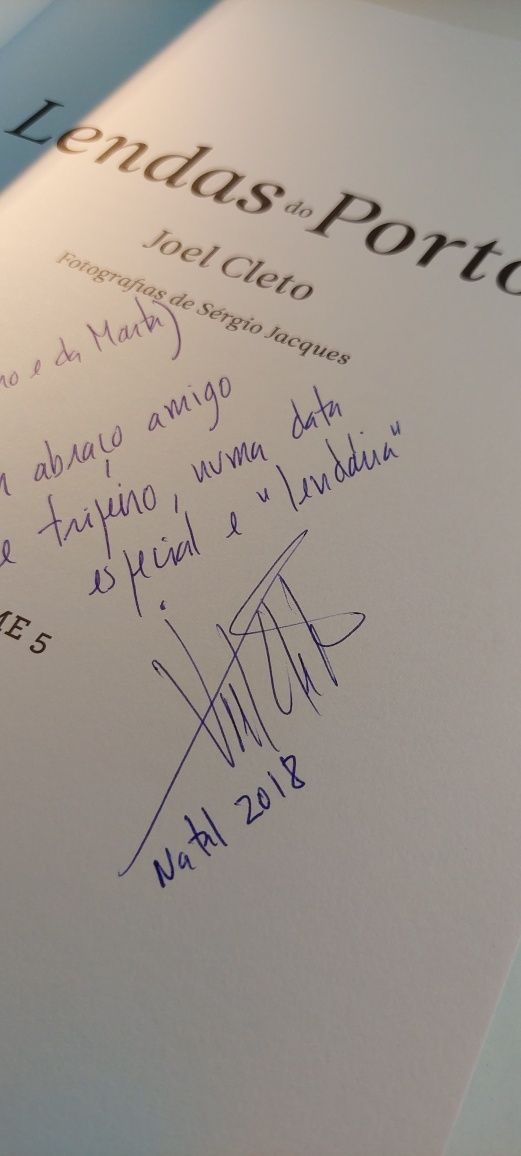 Lendas do Porto
Joel Cleto
Fotografias de Sérgio Jacques
e da Marta)
abraço amigo
tripeiro, numa data
especial e "lendária"
ME 5
Natal 2018